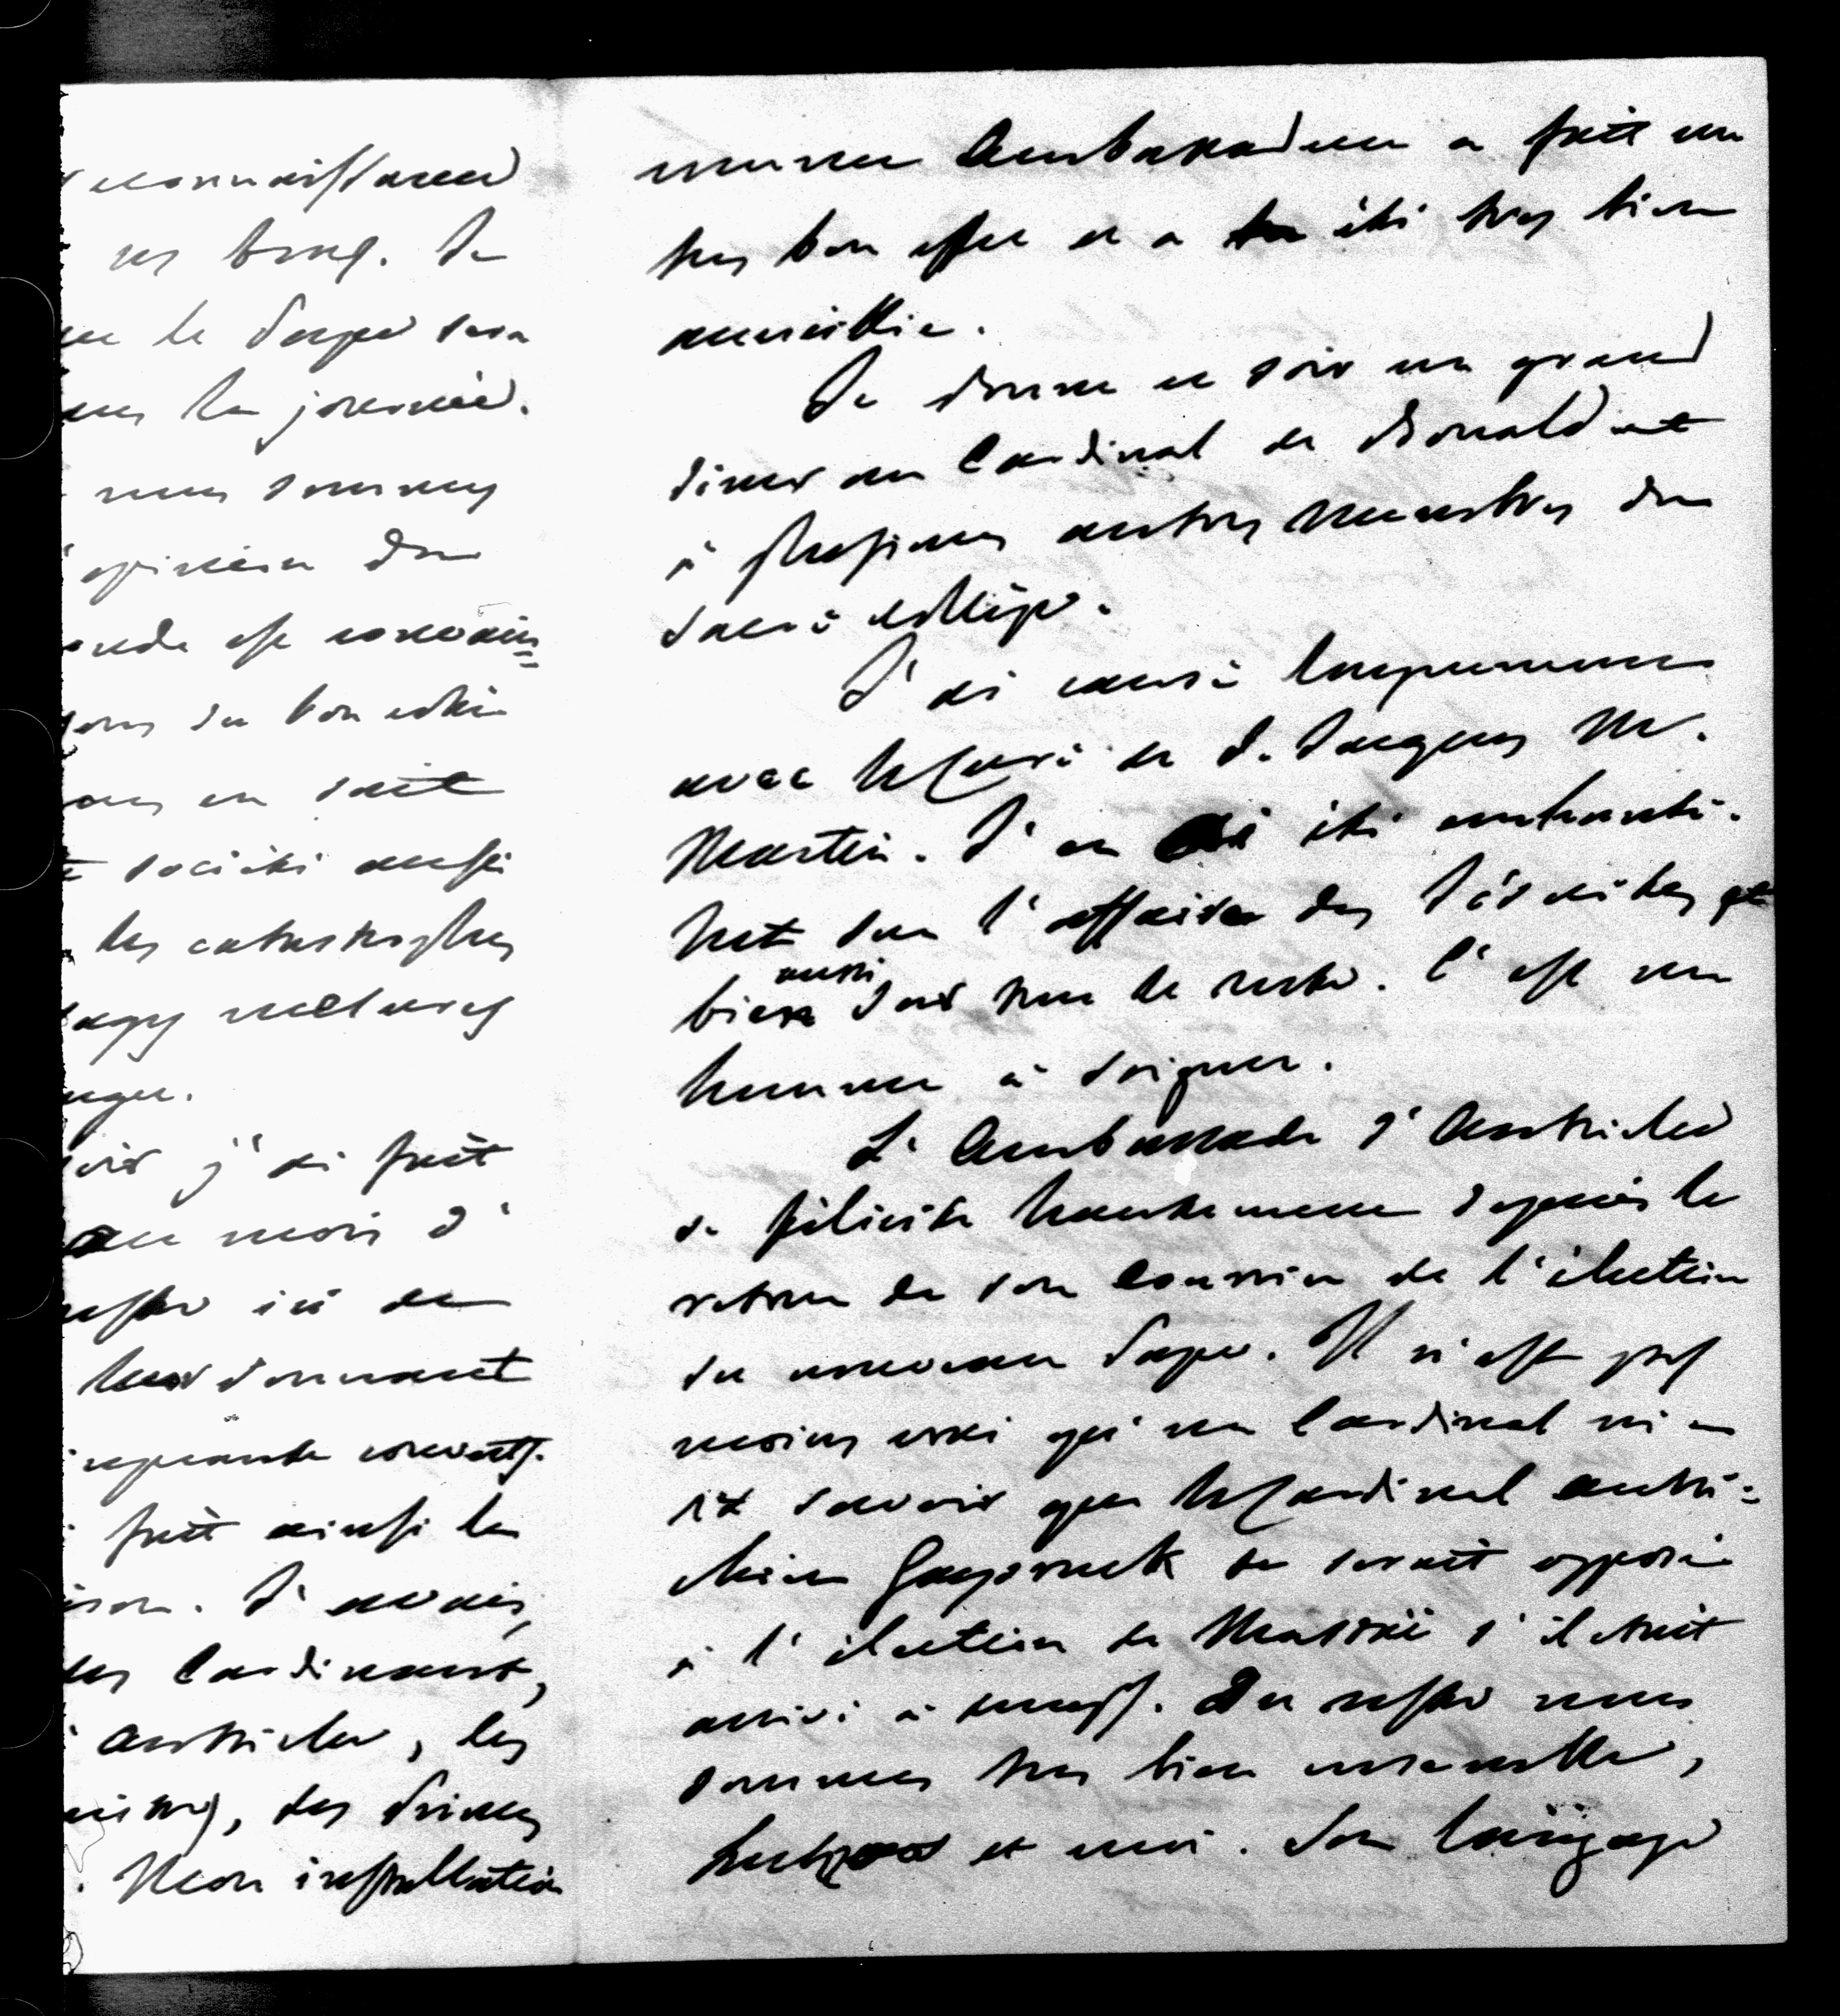 reconnaissance
ses bras. Je
que le Pape sera
la journée.
nous sommes
opinion du
monde est convain=
du bon côté
en sait
société aussi
les catastrophes
j'ai fait
au mois d'
reste ici de
donnant
fait ainsi la
J'avais,
les Cardinaux,
autriche, les
, des Princes
. Mon installation
comme Ambassadeur a fait un
très bon effet et a été très bien
accueillie.
Je donne ce soir un grand
diner au Cardinal de Bonald et
à plusieurs autres membres du
Sacré collège.
J'ai causé longuement
avec le Curé de S. Jacques M.
Martin. J'en ai été content.
tant sur l'affaire des Jésuites que
bien aussi sur tout le reste. C'est un
homme à soigner.
L'Ambassade d'Autriche
se félicite hautement depuis le
retour de son Courrier de l'élection
du nouveau Pape. Il n'est pas
moins vrai qu'un Cardinal m'a
dit savoir que le Cardinal autri=
chien Gaysruck se serait opposé
à l'élection de Mastaï s'il était
arrivé à temps. Du reste nous
sommes très bien ensemble,
Lutzow et moi. Son langage